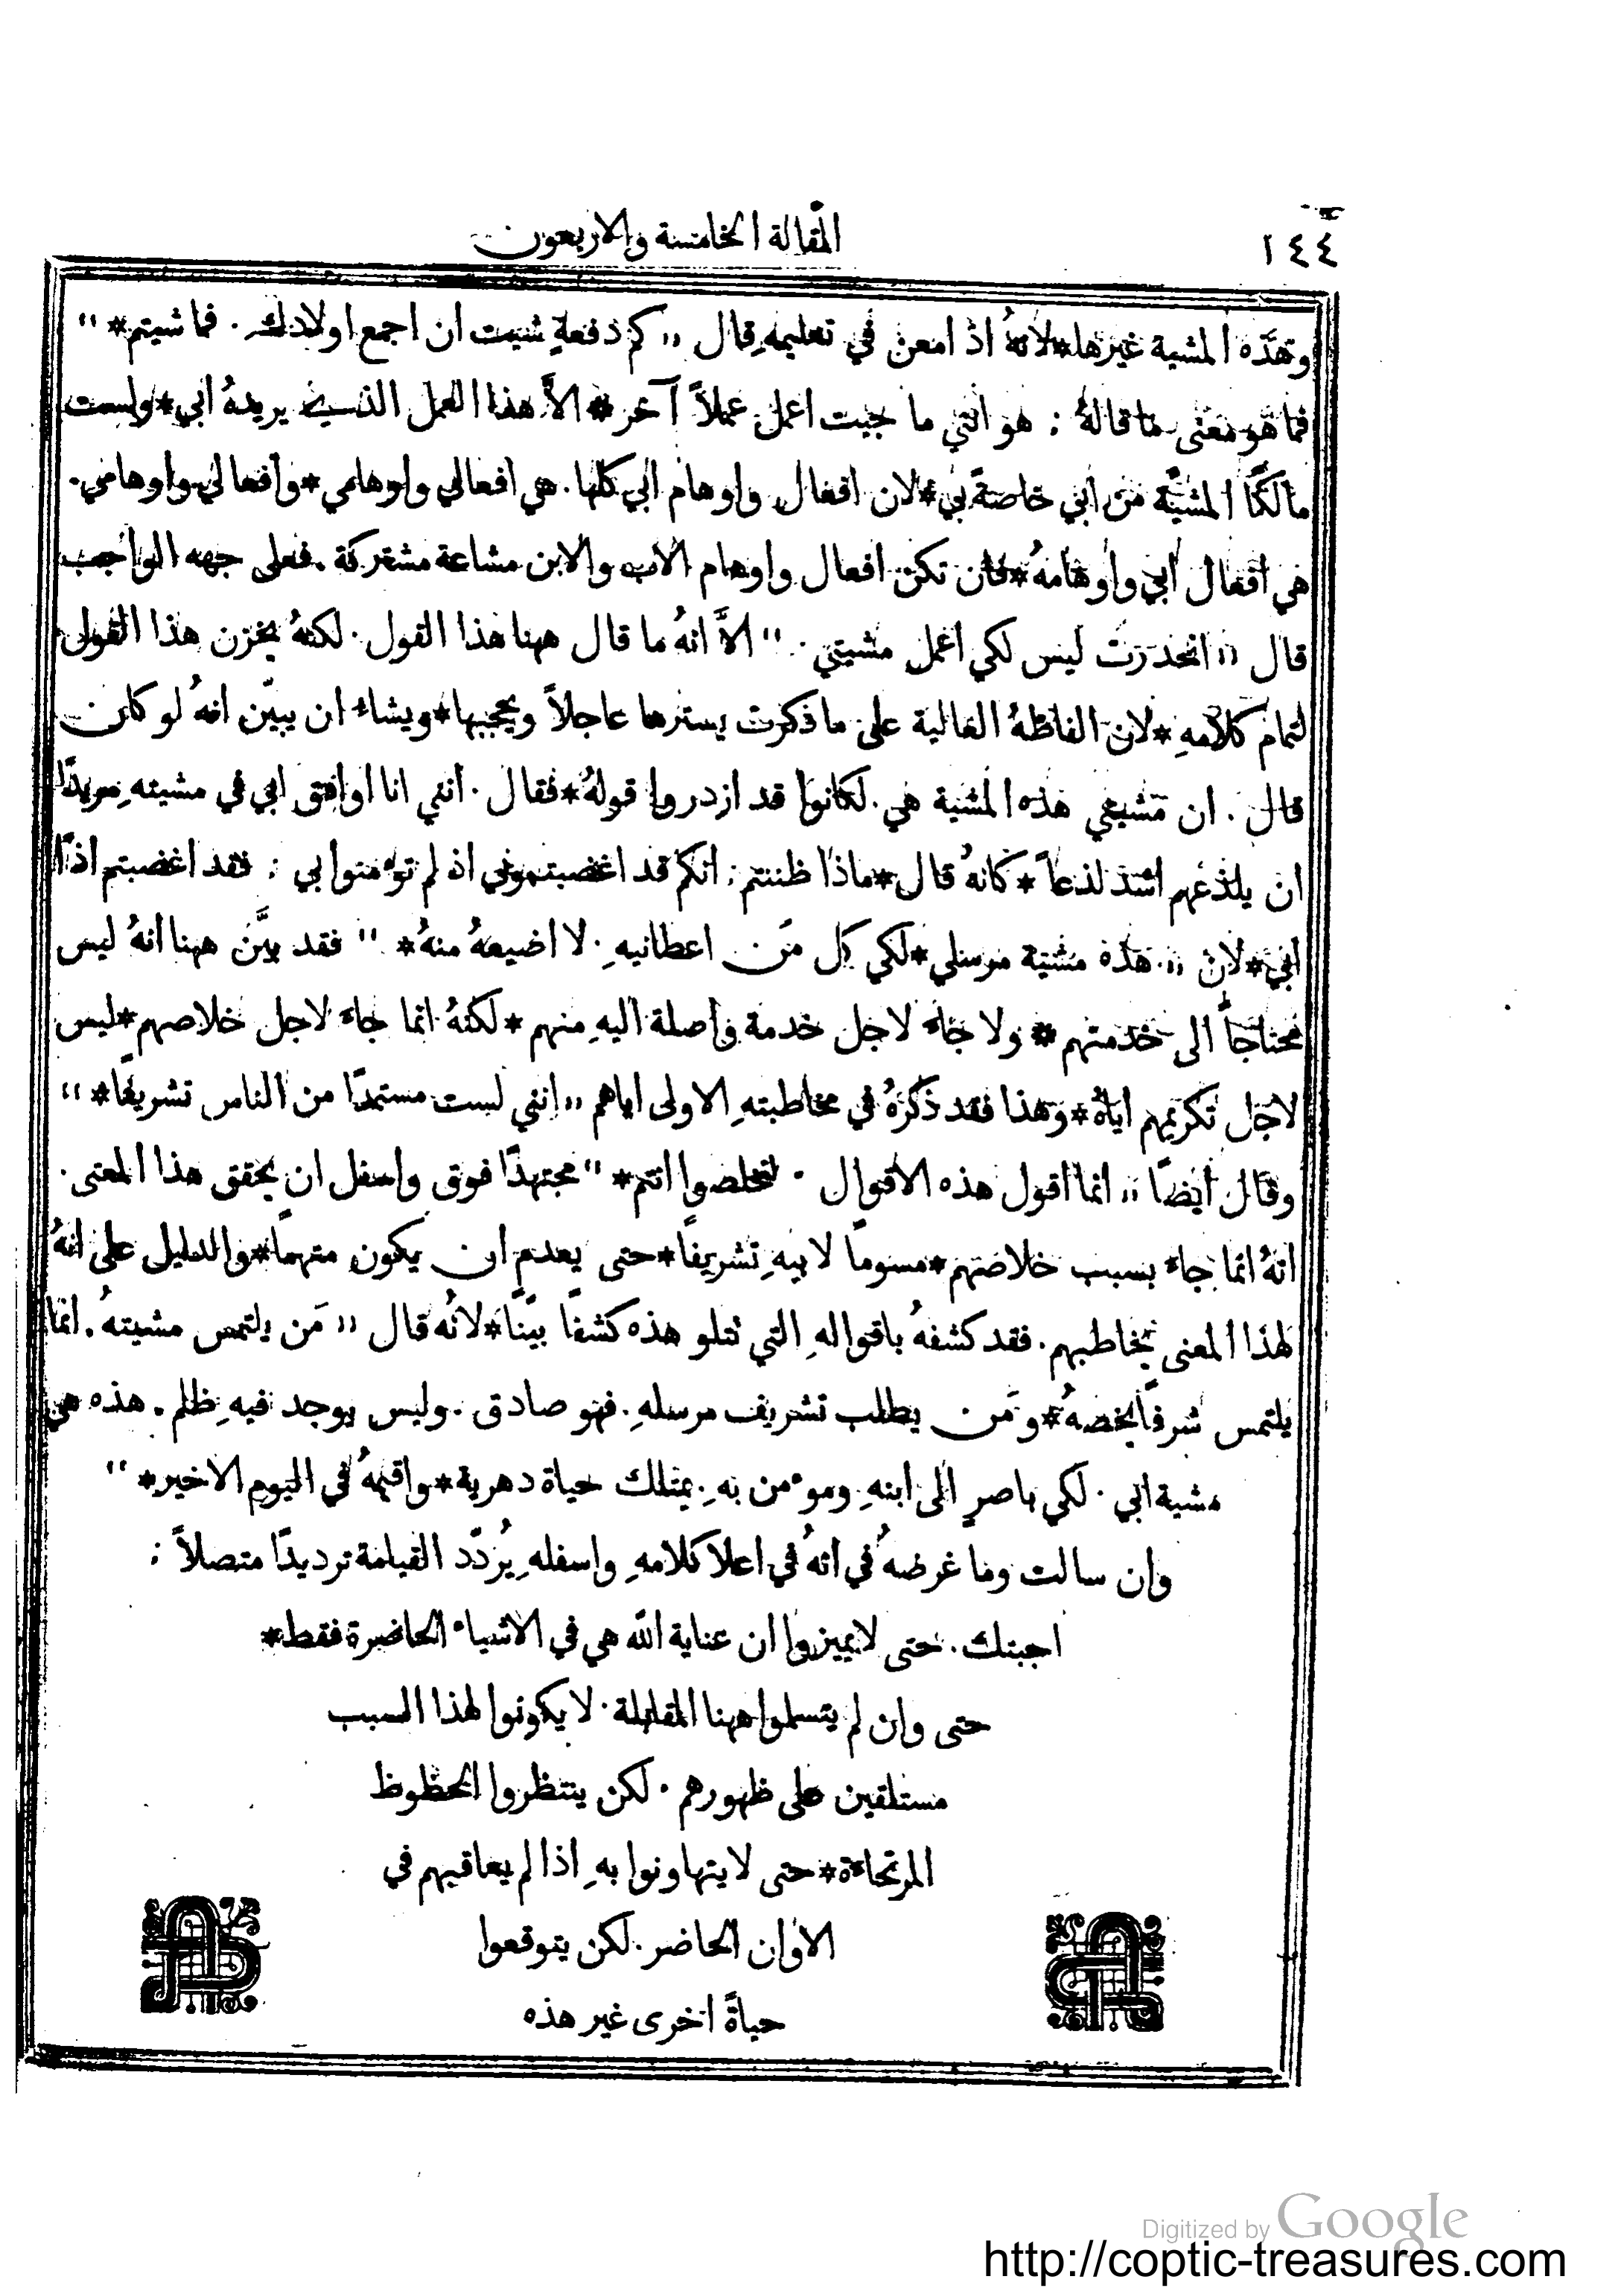 المقالة الخامسة والاربعون
١٤٤
وهذه المشية غيرها*لانهُ اذ امعن في تعليمهِ قال „ كم دفعةٍ شيت ان اجمع اولادكِ. فما شيتم* “
فما هو معنى ما قالهُ : هو انني ما جيت اعمل عملاً آخر * الاَّ هذا العمل الذي يريدهُ ابي*ولست
مالكًا المشية من ابي خاصةً بي*لان افعال واوهام ابي كلها. هي افعالي واوهامي*وافعالي واوهامي.
هي افعال ابي واوهامهُ*فان تكن افعال واوهام الاب والابن مشاعة مشتركة. فعلى جهه الواجب
قال „ انحدرت ليس لكي اعمل مشيتي. “ الاَّ انهُ ما قال ههنا هذا القول. لكنهُ يخزن هذا القول
لتمام كلامهِ*لان الفاظهُ العالية على ما ذكرت يسترها عاجلاً ويحجبها*ويشاء ان يبيّن انهُ لو كان
قال. ان مشيتي هذه المشية هي. لكانوا قد ازدروا قولهُ*فقال. انني انا اوافق ابي في مشيتهِ مريدًا
ان يلذعهم اشد لذعاً * كانهُ قال*ماذا ظننتم: انكم قد اغضبتموني اذ لم تؤمنوا بي : فقد اغضبتم اذًا
ابي*لان „ هذه مشية مرسلي*لكي كل مَن اعطانيهِ. لا اضيعهُ منهُ* “ فقد بيَّن ههنا انهُ ليس
محتاجاً الى خدمتهم * ولا جاء لاجل خدمة واصلة اليهِ منهم *لكنهُ انما جاء لاجل خلاصهم*ليس
لاجل تكريمهم اياهُ*وهذا فقد ذكرهُ في مخاطبتهِ الاولى اياهم „ انني لست مستمدًا من الناس تشريفًا* “
وقال ايضًا „ انما اقول هذه الاقوال. لتخلصوا انتم* “ مجتهدًا فوق واسفل ان يحقق هذا المعنى.
انهُ انما جاء بسبب خلاصهم*مسومًا لابيهِ تشريفًا*حتى يعدم ان يكون متهمًا*والدليل على انهُ
لهذا المعنى يخاطبهم. فقد كشفهُ باقوالهِ التي تتلو هذه كشفًا بينًا*لانُه قال „ مَن يلتمس مشيتهُ. انما
يلتمس شرفًا يخصهُ*ومَن يطلب تشريف مرسلهِ. فهو صادق. وليس يوجد فيهِ ظلم. هذه هي
مشية ابي. لكي باصرٍ الى ابنهِ ومومن بهِ. يمتلك حياة دهرية*واقيمهُ في اليوم الاخير* “
وان سالت وما غرضهُ في انهُ في اعلا كلامهِ واسفلهِ يُردّد القيامة ترديدًا متصلاً :
اجبتك. حتى لا يميزوا ان عناية الله هي في الاشياء الحاضرة فقط*
حتى وان لم يتسلموا ههنا المقابلة. لا يكونوا لهذا السبب
مستلقين على ظهورهم. لكن ينتظروا الحظوظ
المرتجاءة*حتى لا يتهاونوا بهِ اذا لم يعاقبهم في
الاوان الحاضر. لكن يتوقعوا
حياةً اخرى غير هذه
Digitized by Google
http://coptic-treasures.com